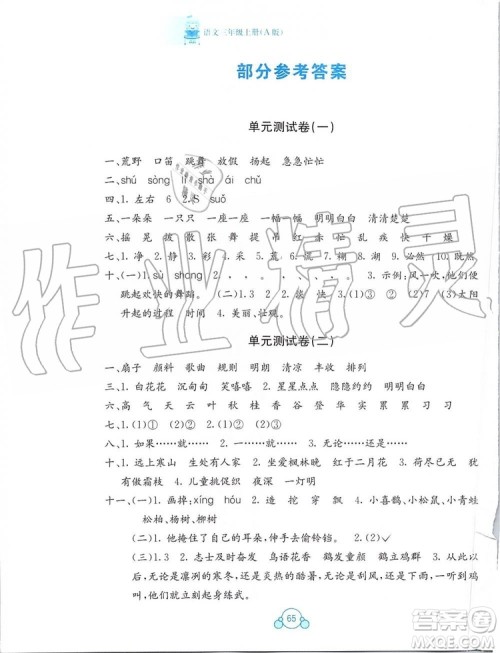 语文三年级上册(A版)
部分参考答案
单元测试卷(一)
一、荒野 口笛 跳舞 放假 扬起 急急忙忙
二、shú sòng lǐ shà ái chǔ
四、1. 左右 6 2. S suǒ
五、一朵朵 一只只 一座一座 一幅一幅 明明白白 清清楚楚
六、摇 晃 拨 散 张 舞 提 吊 红 赤 忙 乱 疾 快 干 燥
七、1. 净 2. 静 3. 彩 4. 采 5. 荒 6. 慌 7. 帽 8. 冒 9. 必然 10. 既然
十、(一)1. sù shang 2. 3. 示例:风一吹,他们便
跳起欢快的舞蹈。 (二)1. 3 2. 装 怯 3. (1)① (2)② (2)7 (3)太阳
升起的过程 时间 4. 美丽、壮观。
单元测试卷(二)
一、扇子 颜料 歌曲 规则 明朗 清凉 丰收 排列
二、1. 白花花 沉甸甸 笑嘻嘻 2. 星星点点 隐隐约约 明明白白
六、高 气 天 云 叶 红 枝 桂 香 谷 登 华 实 累 累 习 习
七、(1)① (2)② 2. (1)② (2)①
八、1. 如果……就…… 2. 一……就…… 3. 无论……还是……
十、1. 远上寒山 生处有人家 2. 坐爱枫林晚 红于二月花 3. 荷尽已无 犹
有傲霜枝 4. 儿童挑促织 夜深 一灯明
十一、(一)1. 画掉:xíng hóu 2. 造 挖 穿 飘 3. 小喜鹊、小松鼠、小青蛙
松柏、杨树、柳树
(二)1. 他掩住了自己的耳朵,伸手去偷铃铛。 2. (2)✓
(三)1. 3 2. 志士及时奋飞 鸟语花香 鹅发童颜 鹤立鸡群 3. 从此以
后,无论是凛冽的寒冬,还是炎热的酷暑,无论是刮风,还是下雨,他们一
听到鸡叫,就立刻起身练武。
65